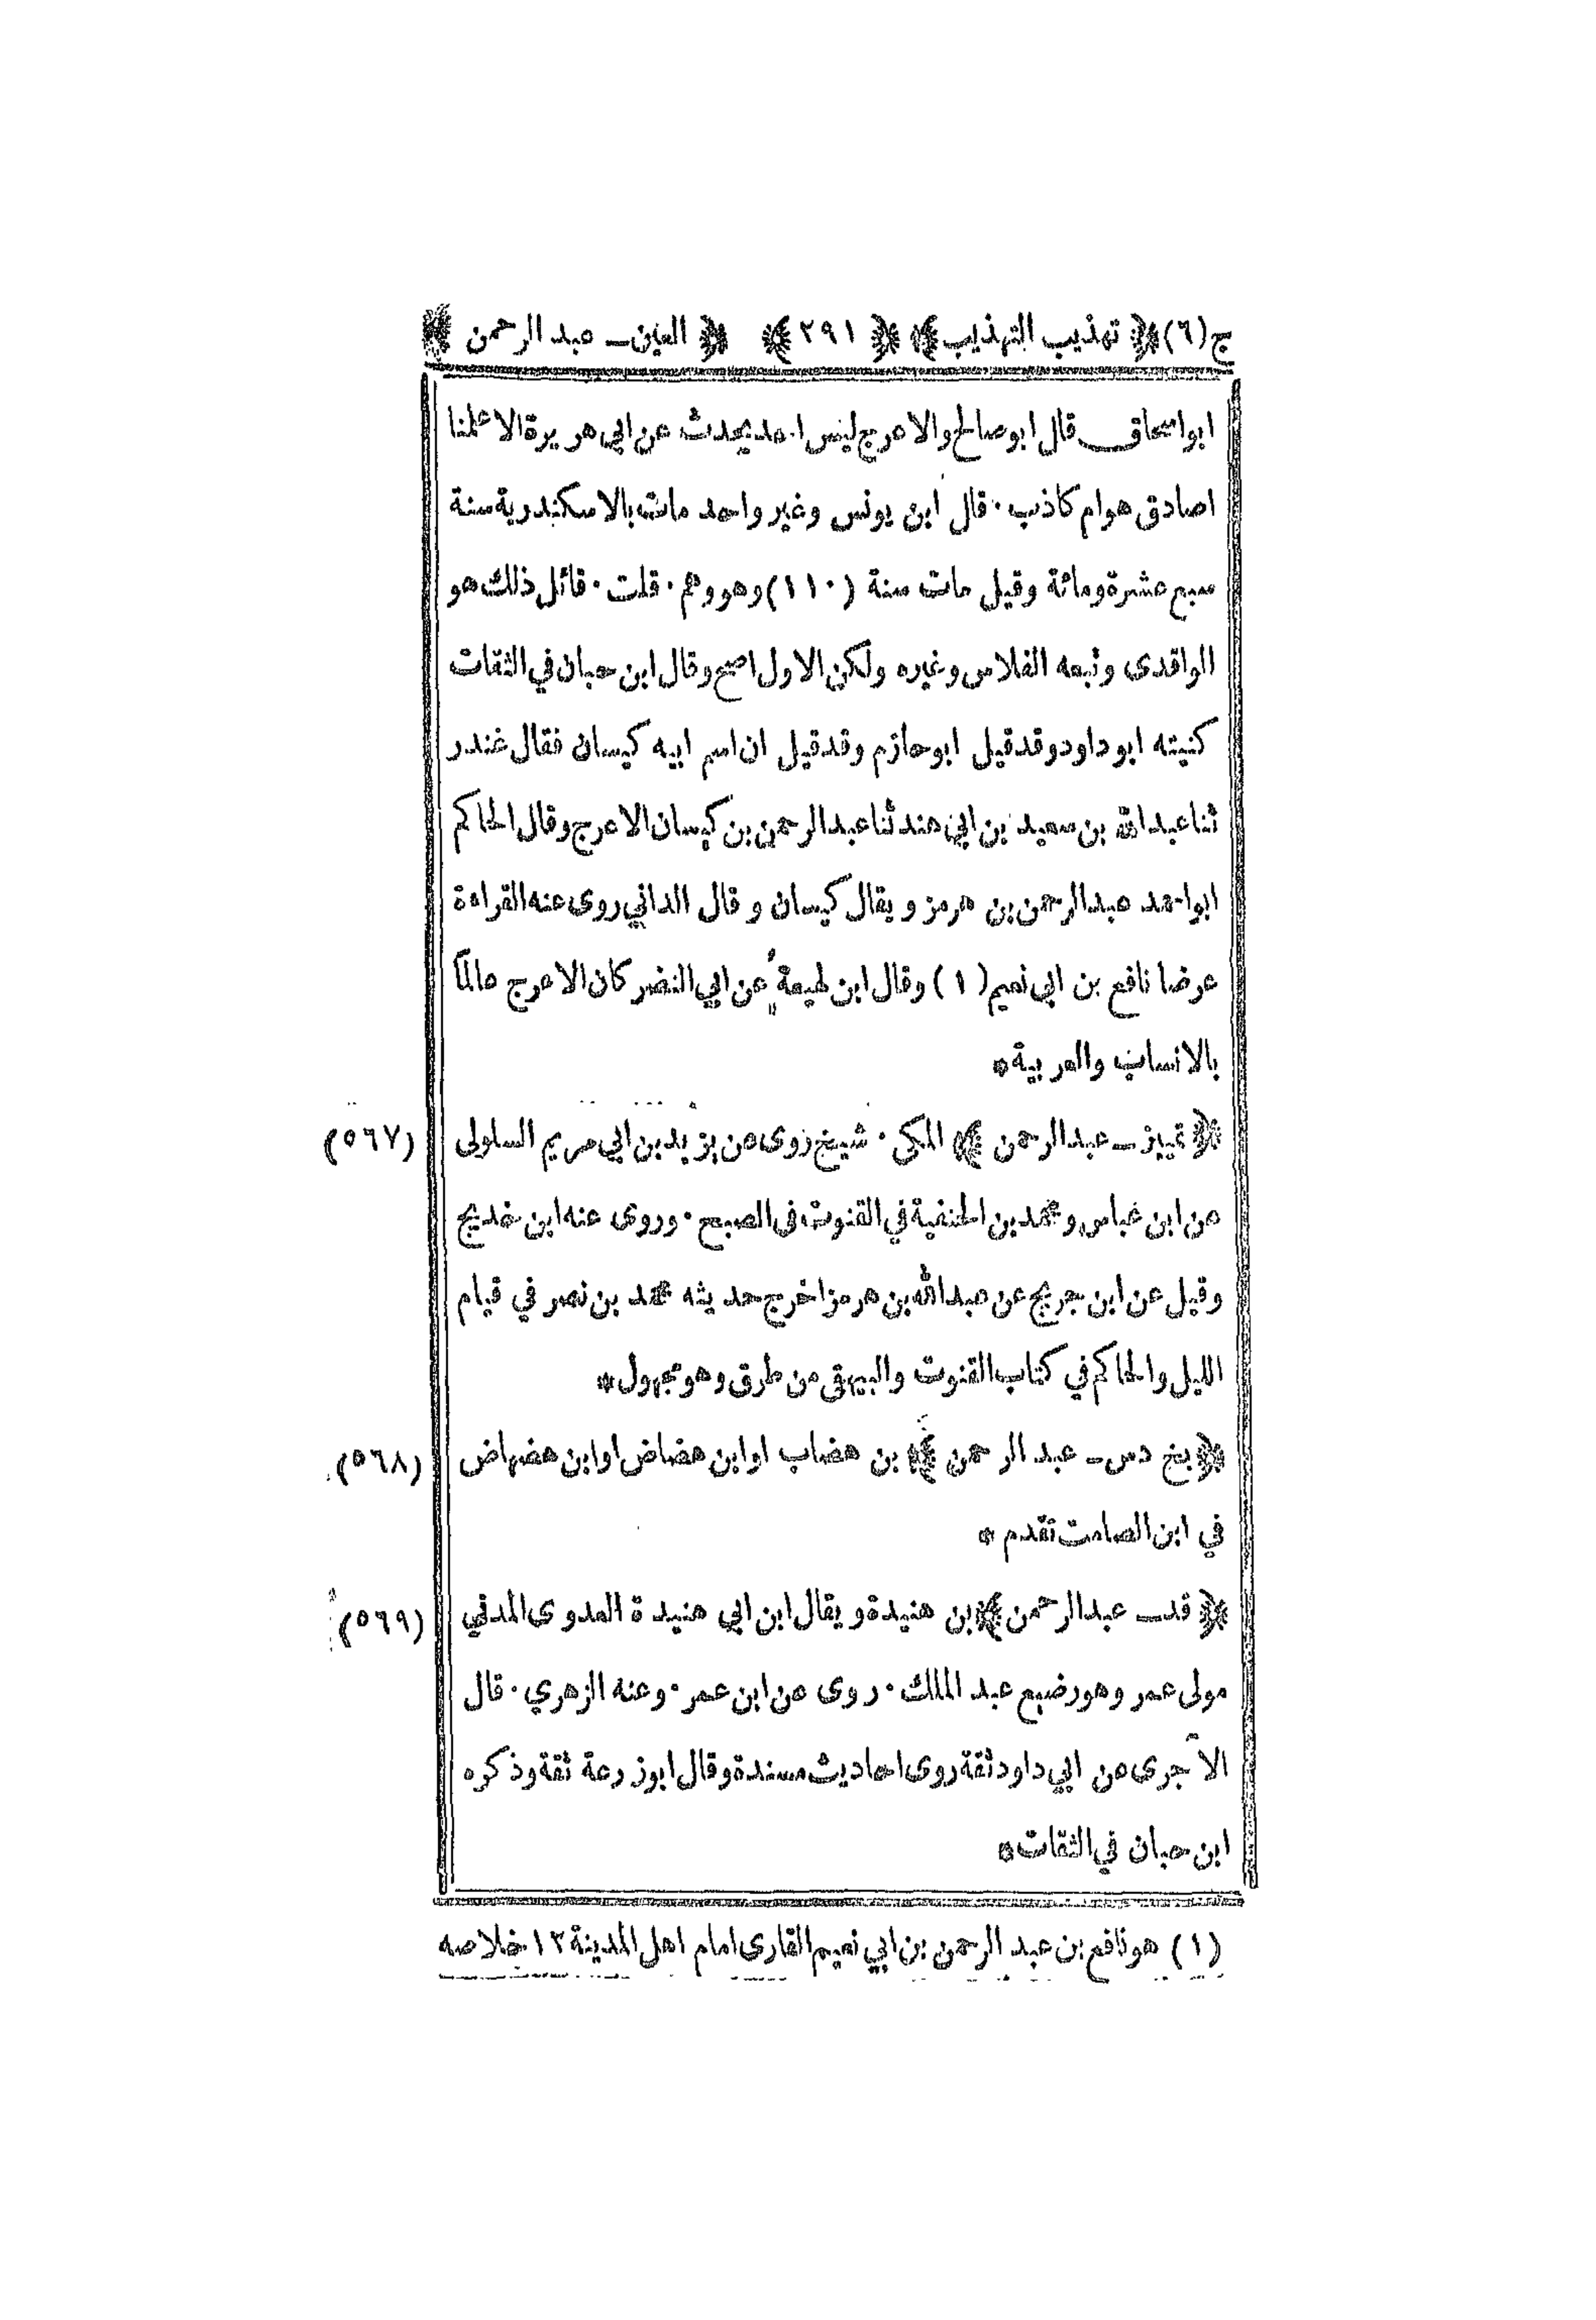 ج(٦) ﴿ تهذيب التهذيب ﴾ ﴿ ٢٩١ ﴾ ﴿ العين ــ عبد الرحمن ﴾
ابواسحاق قال ابوصالح والاعرج ليس احد يحدث عن ابي هريرة الا علمنا
اصادق هوام كاذب ٠ قال ابن يونس وغير واحد مات بالاسكندرية سنة
سبع عشرة ومائة وقيل مات سنة (١١٠) وهو وهم ٠ قلت ٠ قائل ذلك هو
الواقدى وتبعه الفلاس وغيره ولكن الاول اصح وقال ابن حبان في الثقات
كنيته ابو داود وقد قيل ابو حازم وقد قيل ان اسم ابيه كيسان فقال غندر
ثنا عبدالله بن سعيد بن ابي هند ثنا عبدالرحمن بن كيسان الاعرج وقال الحاكم
ابواحمد عبدالرحمن بن هرمز ويقال كيسان وقال الداني روى عنه القراءة
عرضا نافع بن ابي نعيم (١) وقال ابن لهيعة عن ابي النضر كان الاعرج عالماً
بالانساب والعربية *
﴿ تمييز ــ عبدالرحمن ﴾ المكى ٠ شيخ روى عن يزيد بن ابي مريم السلولى (٥٦٧)
عن ابن عباس ومحمد بن الحنفية في القنوت فى الصبح ٠ وروى عنه ابن خديج
وقيل عن ابن جريج عن عبدالله بن هرمز اخرج حديثه محمد بن نصر في قيام
الليل والحاكم في كتاب القنوت والبيهقى من طرق وهو مجهول *
﴿ بخ دس ــ عبد الرحمن ﴾ بن هضاب او ابن هضاض او ابن هضهاض (٥٦٨)
في ابن الصامت تقدم *
﴿ قد ــ عبدالرحمن ﴾ بن هنيدة ويقال ابن ابي هنيدة العدوى المدني (٥٦٩)
مولى عمر وهو رضيع عبد الملك ٠ روى عن ابن عمر ٠ وعنه الزهري ٠ قال
الآجرى عن ابي داود ثقة روى احاديث مسندة وقال ابوزرعة ثقة وذكره
ابن حبان في الثقات *
(١) هو نافع بن عبد الرحمن بن ابي نعيم القارى امام اهل المدينة ١٢ خلاصه